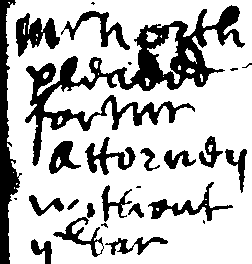 mr North
pleaded
for Mr
Attorney
without
ye bar